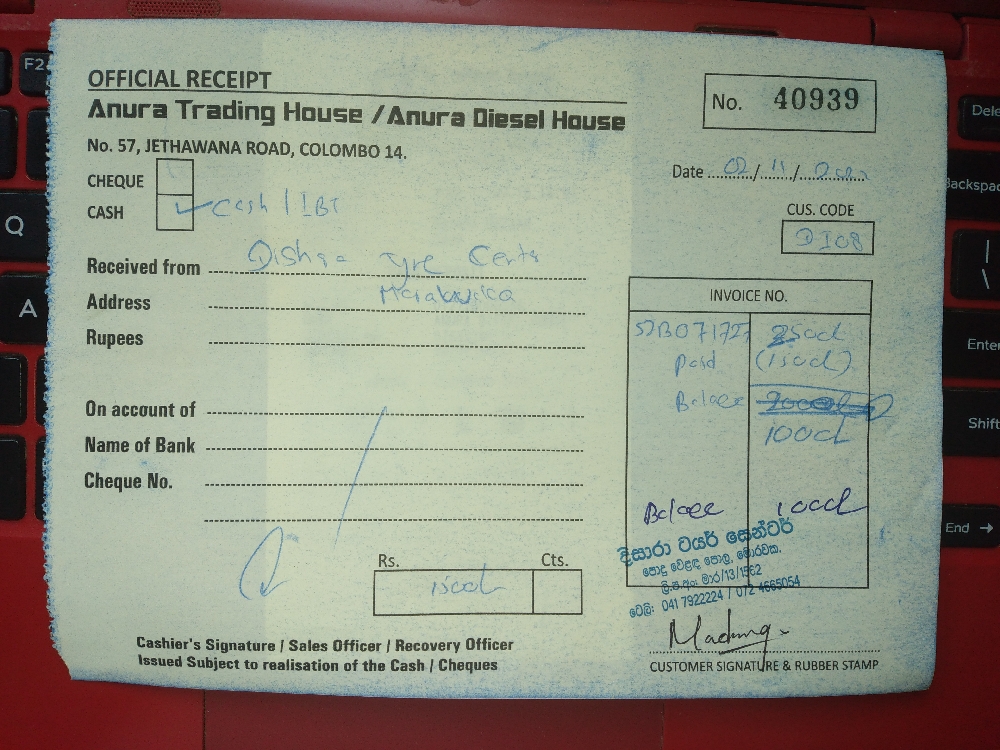 OFFICIAL RECEIPT
Anura Trading House / Anura Diesel House
No. 57, JETHAWANA ROAD, COLOMBO 14.
No. 40939
Date 02/11/
CHEQUE
CASH Cash / IBT
CUS. CODE
DI08
Received from Tyre
Address
Rupees
On account of
Name of Bank
Cheque No.
INVOICE NO.
paid
Balace
Balace
Rs. Cts.
දිසාරා ටයර් සෙන්ටර්
පොදු වෙළඳ පොල, මොරවක.
ලි.ප.අං: මාර/13/1562
ටෙලි: 041 7922224 / 072 4665054
Cashier's Signature / Sales Officer / Recovery Officer
Issued Subject to realisation of the Cash / Cheques
CUSTOMER SIGNATURE & RUBBER STAMP
F2
Q
A
Dele
Backspac
|
\
Enter
Shift
End →